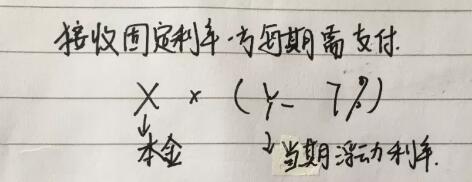 接收固定利率方每期需支付.
X × (Y - 7%)
↓ ↓
本金 当期浮动利率.